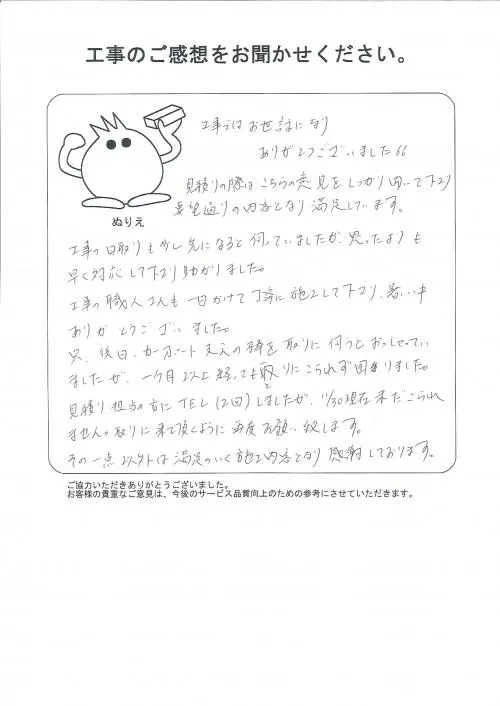 工事のご感想をお聞かせください。
工事ではお世話になり
ありがとうございました
見積りの際はこちらの意見をしっかり聞いて下さり
要望通りの内容となり満足しています。
ぬりえ
工事の日取りも少し先になると伺っていましたが、思ったよりも
早く対応して下さり助かりました。
工事の職人さんも一日かけて丁寧に施工して下さり、暑い中
ありがとうございました。
只、後日、カーポート支えの棒を取りに伺うとおっしゃってい
ましたが、一ヶ月以上経っても取りにこられず困りました。
見積り担当の方にTEL(2回)しましたが、11/30現在未だこられ
ません。取りに来て頂くように再度お願い致します。
その一点以外は満足のいく施工内容となり感謝しております。
ご協力いただきありがとうございました。
お客様の貴重なご意見は、今後のサービス品質向上のための参考にさせていただきます。